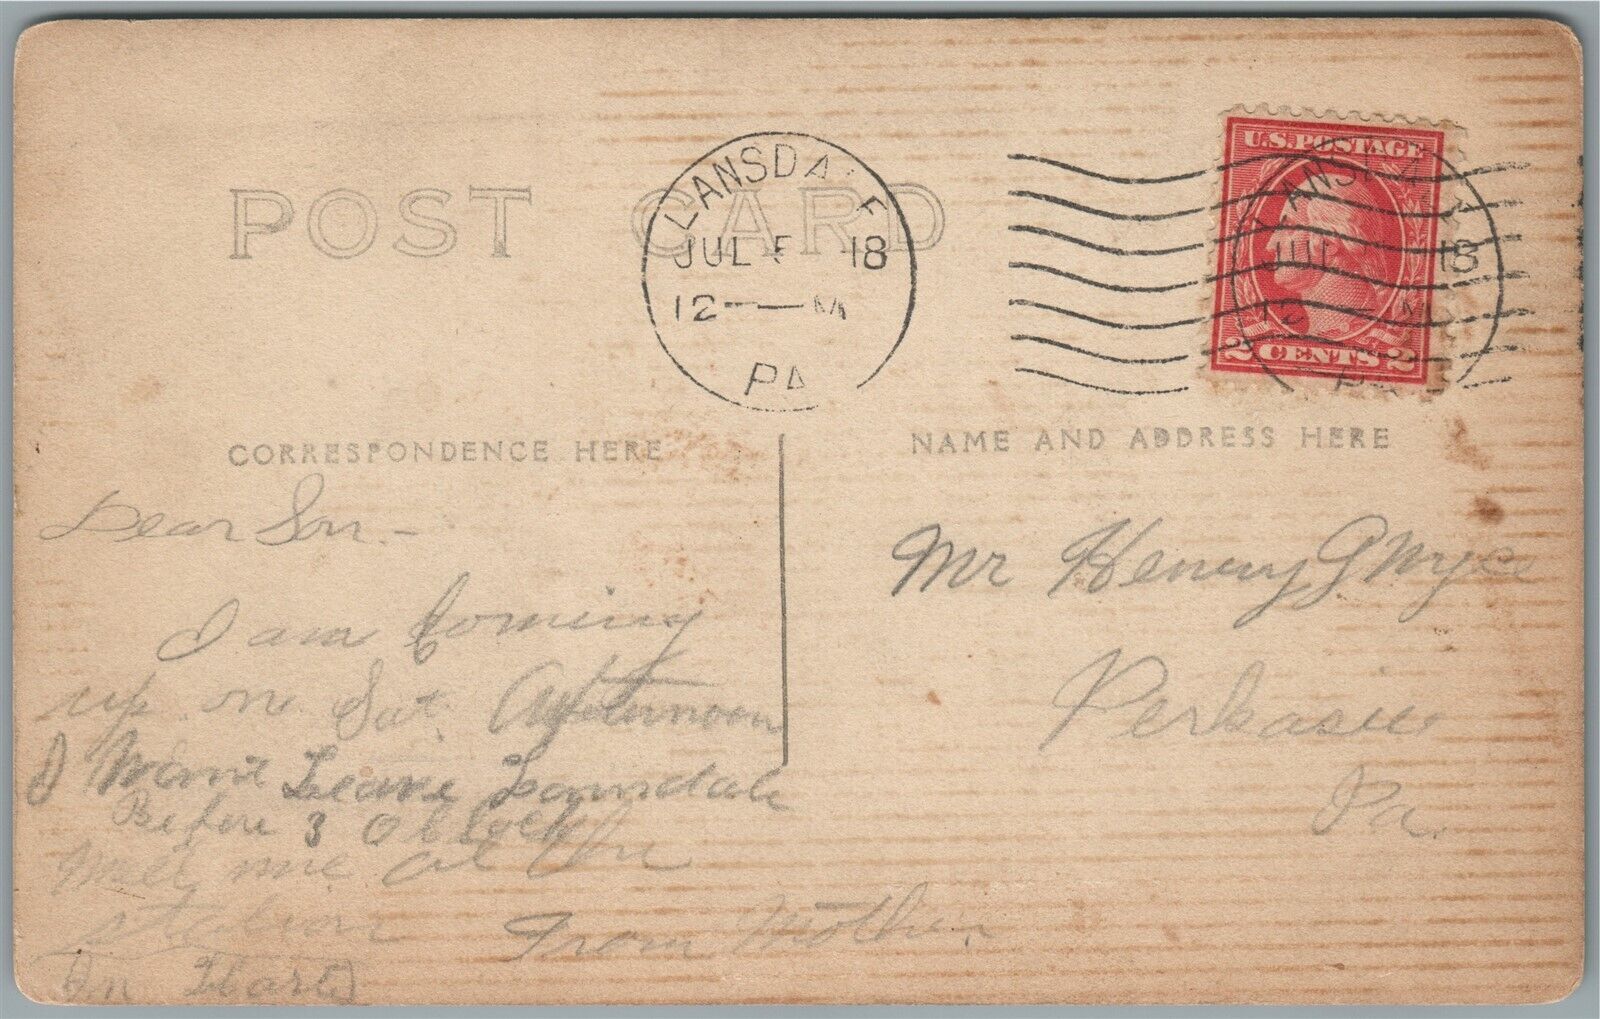 POST CARD
LANSDALE
JUL 5 18
12 — M
PA
U.S. POSTAGE
2 CENTS 2
LANSDA
JUL 18
12 M
PA
CORRESPONDENCE HERE
NAME AND ADDRESS HERE
Dear Son.-
I am Coming
up on Sat. Afternoon
I Wont Leave Lansdale
Before 3 O Clock
Meet me at the
station
From Mother
Mr Henry G Moyer
Perkasie
Pa.